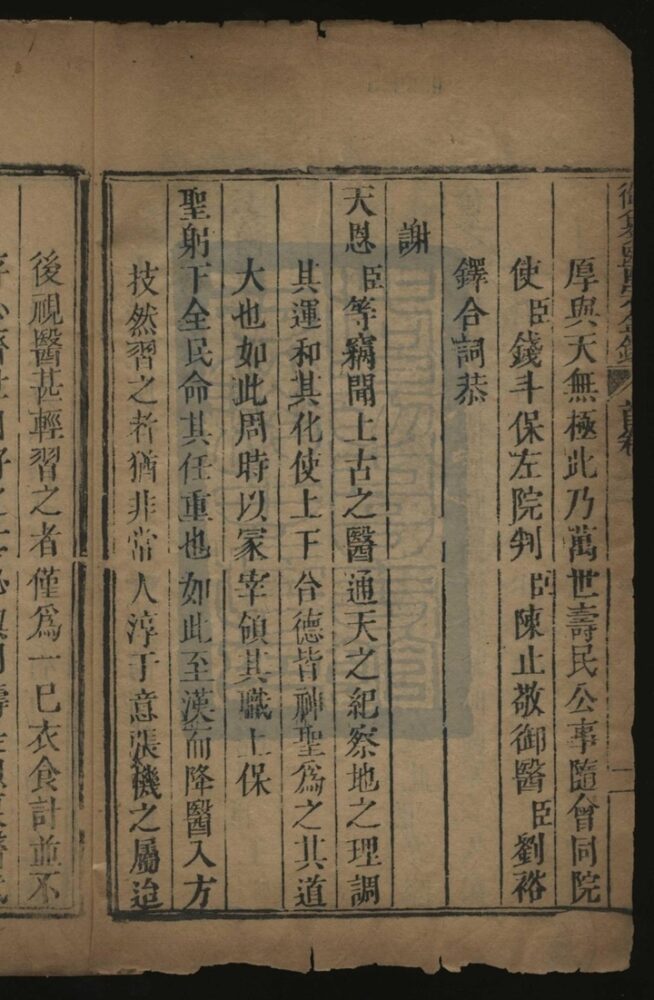 御纂醫宗金鑑 首卷 二
厚與天無極此乃萬世壽民公事隨會同院
使臣錢斗保左院判臣陳止敬御醫臣劉裕
鐸合詞恭
謝
天恩臣等竊聞上古之醫通天之紀察地之理調
其運和其化使上下合德皆神聖爲之其道
大也如此周時以冡宰領其職上保
聖躬下全民命其任重也如此至漢而降醫入方
技然習之者猶非常人淳于意張機之屬迨
後視醫甚輕習之者僅爲一已衣食計並不